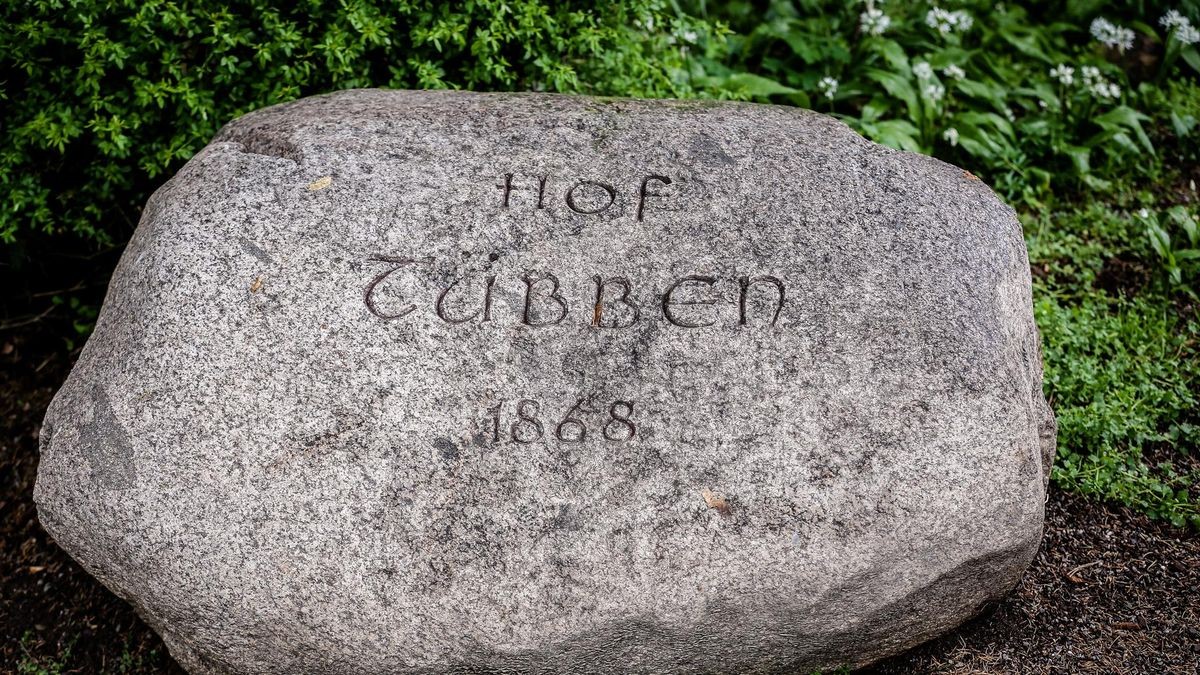 HOF
TÜBBEN
1868